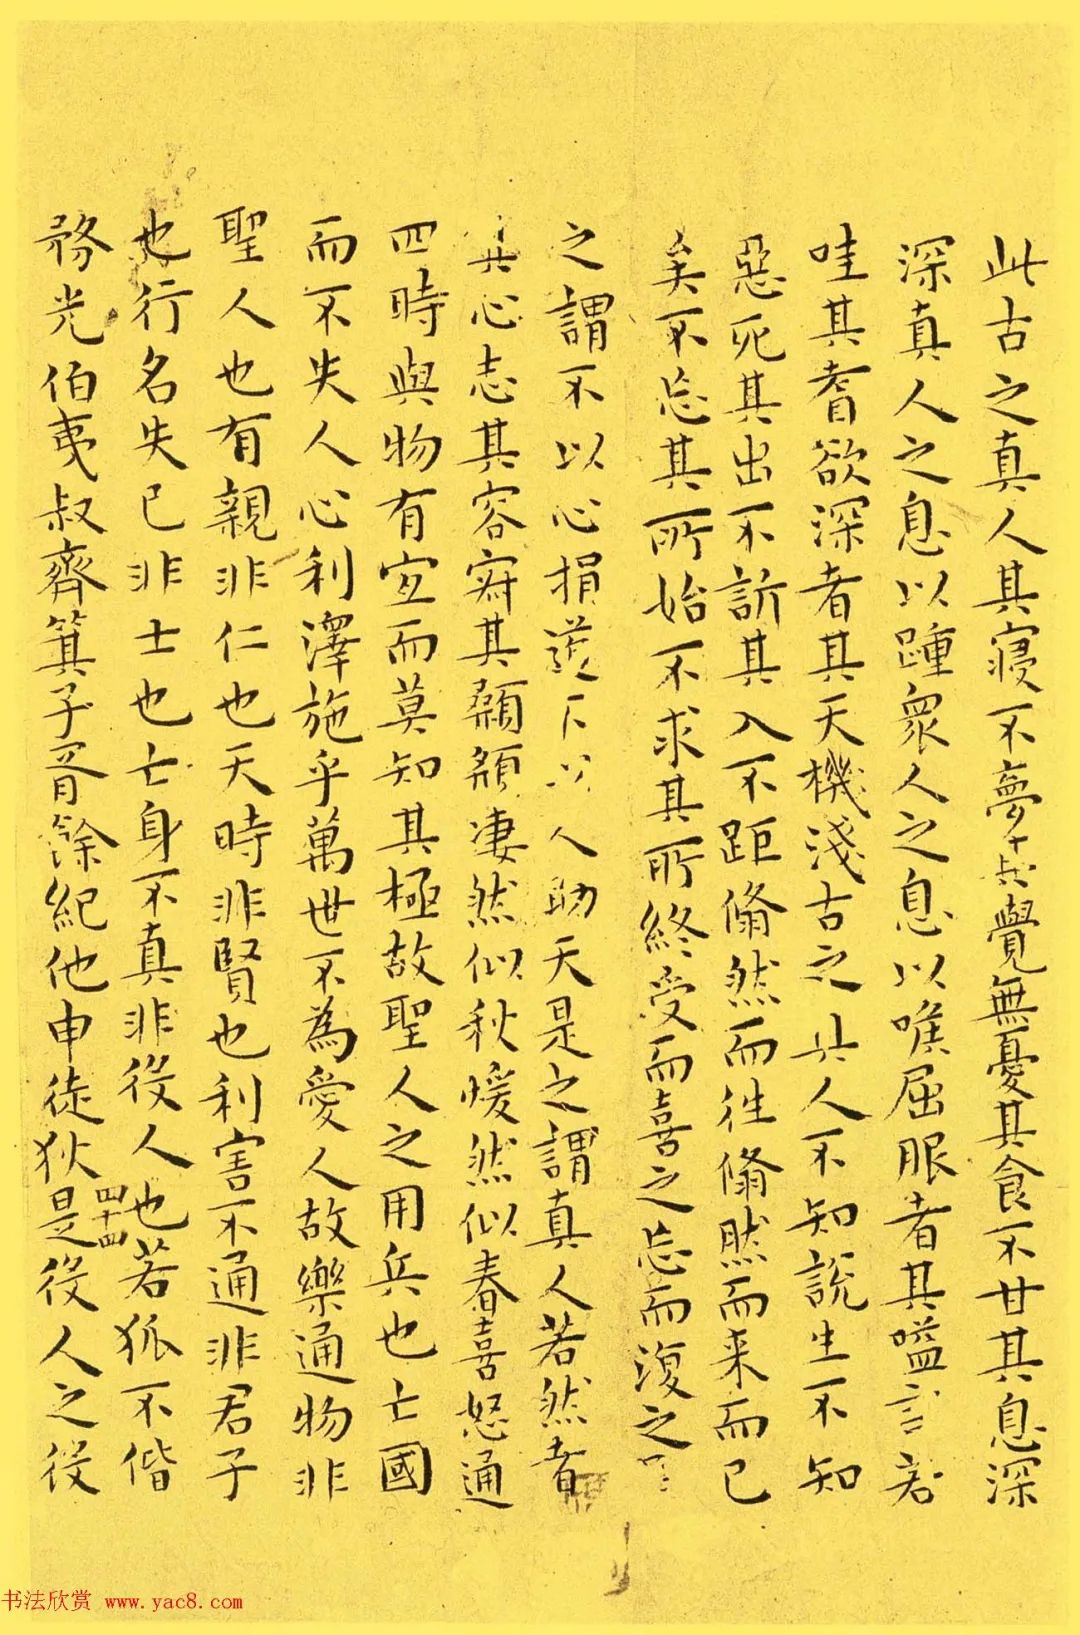 此古之真人其寢不夢其覺無憂其食不甘其息深
深真人之息以踵衆人之息以喉屈服者其嗌言若
哇其耆欲深者其天機淺古之真人不知說生不知
惡死其出不訢其入不距翛然而往翛然而来而已
矣不忘其所始不求其所終受而喜之忘而復之是
之謂不以心捐道不以人助天是之謂真人若然者
其心志其容寂其顙頯凄然似秋煖然似春喜怒通
四時與物有宜而莫知其極故聖人之用兵也亡國
而不失人心利澤施乎萬世不為愛人故樂通物非
聖人也有親非仁也天時非賢也利害不通非君子
也行名失己非士也亡身不真非役人也若狐不偕
務光伯夷叔齊箕子胥餘紀他申徒狄是役人之役
四十四
书法欣赏 www.yac8.com